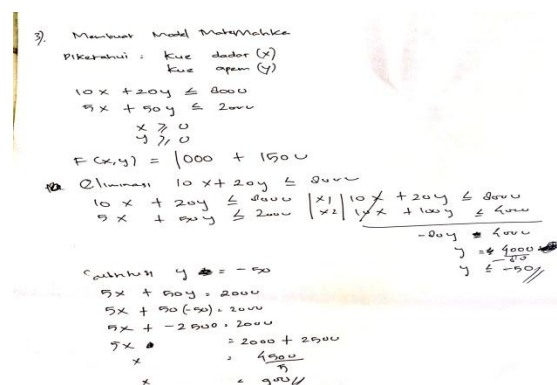 3). Membuat Model Matematika
Diketahui : Kue dadar (x)
Kue apem (y)
10x + 20y ≤ 8000
5x + 50y ≤ 2000
x ≥ 0
y ≥ 0
F(x,y) = 1000 + 1500
Eliminasi 10x + 20y ≤ 8000
10x + 20y ≤ 8000 |x1| 10x + 20y ≤ 8000
5x + 50y ≤ 2000 |x2| 10x + 100y ≤ 4000
-80y = 4000
y = 4000
-80
y ≤ -50//
Substitusi y = -50
5x + 50y = 2000
5x + 50(-50) = 2000
5x + -2500 = 2000
5x = 2000 + 2500
x = 4500
5
x = 900//